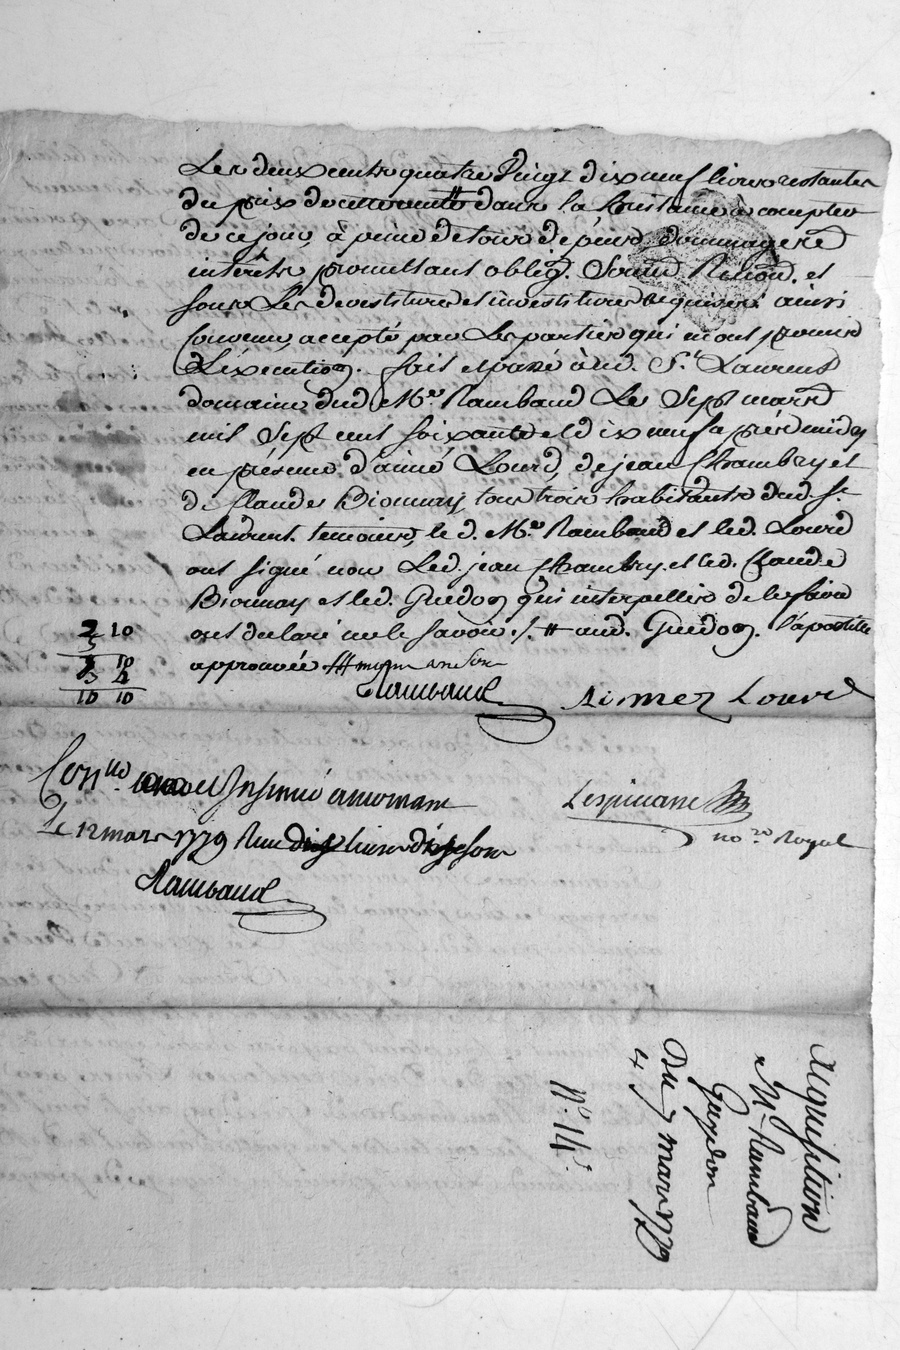 Les deux cents quatre Vingt dix neuf livres restantes
du prix de cette vente dans la huitaine à compter
de ce jour, à peine de tous dépens dommages et
intérêts promettant oblig. Soum. Renon. et
sous Les devestitures et investitures requises. ainsi
Convenu, accepté par Les parties qui m'ont promis
L'éxécution. fait et passé aud. St. Laurens
domaine dud Me. Rambaud Le Sept mars
mil Sept cent soixante et dix neuf après midy
en présence d'aimé Lourd, de jean Chambry et
de Claude Bionnay tous trois habitants dud. St.
Laurent. temoins, le d. Me. Rambaud et led. Lourd
ont signé non Led. jean Chambry. et led. Claude
Bionnay et led. Guedon qui interpellés de le faire
ont declaré ne le savoir ./. # aud. Guedon. l'apostille
approuvée
Rambaud Aimez Lourd
2 10
5
3
10 10
Con.lle et Insinué
Le 12 mars 1779 Reçu dix livres dix sols
Rambaud
Lespinasse
no.re Royal
Acquisition
Me Rambaud
Guydon
Du 7 mars 1779
N.º 14.